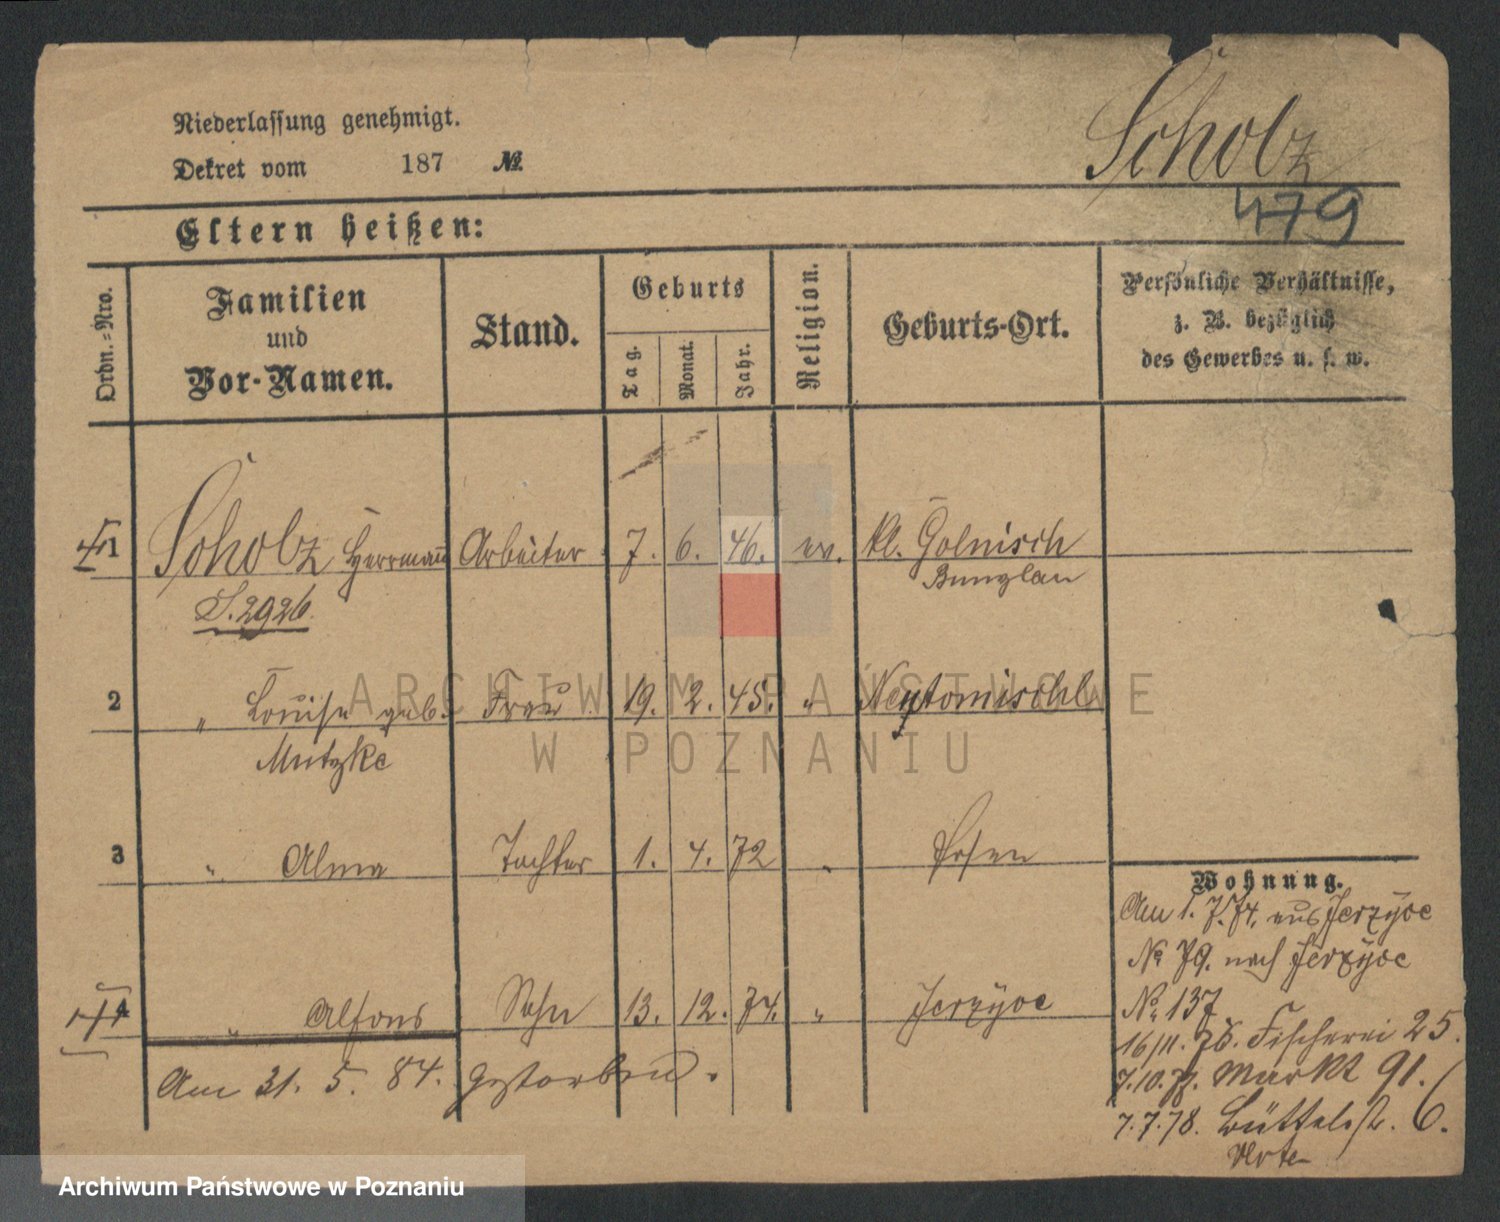 Niederlassung genehmigt.
Dekret vom 187 №.
Scholz
479
Eltern heißen:
Ordn.-Nro.
Familien und Vor-Namen.
Stand.
Geburts
Tag.
Monat.
Jahr.
Religion.
Geburts-Ort.
Persönliche Verhältnisse,
z. B. bezüglich
des Gewerbes u. s. w.
1 Scholz Herrmann Arbeiter 7. 6. 46. ev. kl. Golnisch
Bunzlau
S. 2926
2 " Louise geb. Frau 19. 2. 45. " Neutomischl
Mutzke
3 " Alma Tochter 1. 4. 72 " Posen
4 " Alfons Sohn 13. 12. 74. " Jerzyce
Am 31. 5. 84. gestorben.
Wohnung.
Am 1. 7. 74. aus Jerzyce
№ 79. nach Jerzyce
№ 137
16/11. 76. Fischerei 25.
7.10.77. Markt 91.
7.7.78. Büttelstr. 6.
ARCHIWUM PAŃSTWOWE
W POZNANIU
Archiwum Państwowe w Poznaniu